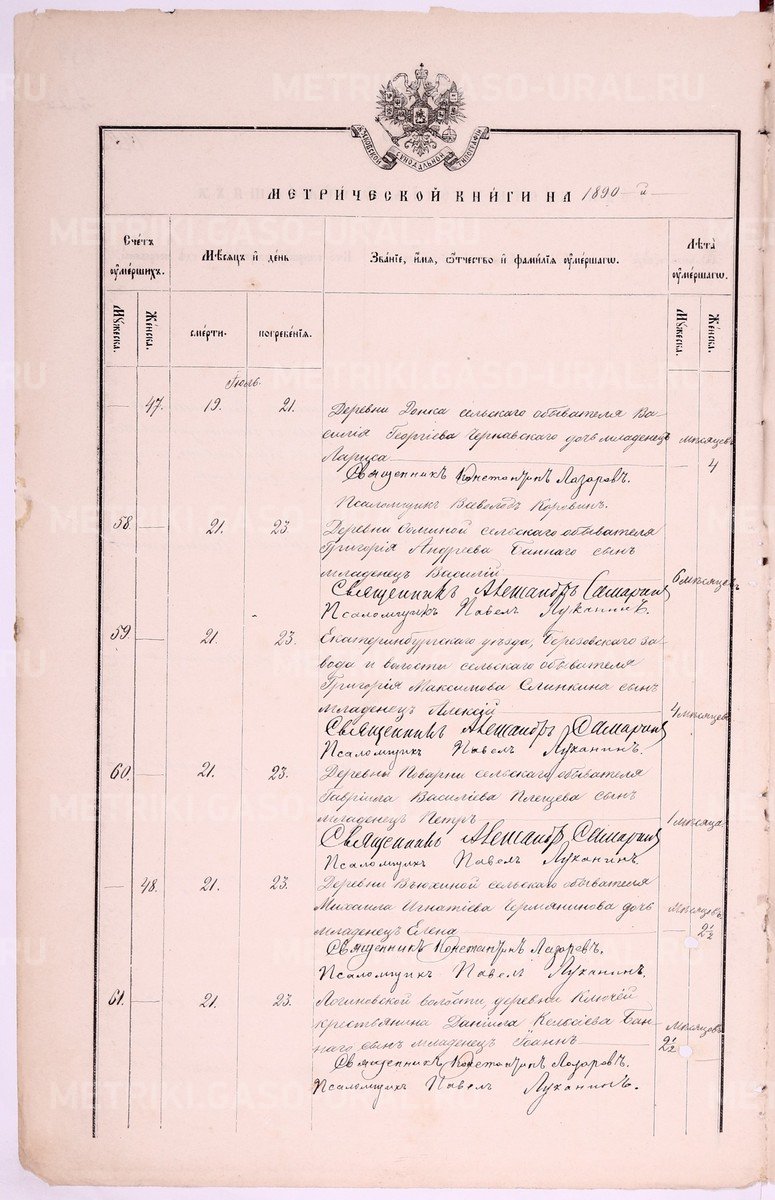 МЕТРИ́ЧЕСКОЙ КНИ́ГИ НА 1890-й
Сче́тъ ᲂу҆ме́ршихъ.
Мѣ́сяцъ и҆ де́нь
Зва́нїе, и҆́мя, ѻ҆́тчество и҆ фамилїя ᲂу҆ме́ршагѡ.
Лѣ́та ᲂу҆ме́ршагѡ.
Мꙋ́жеска.
Же́нска.
сме́рти.
погребе́нїѧ.
Мꙋ́жеска.
Же́нска.
Іюль
47. 19. 21.
Деревни сельскаго обывателя Ва-
силія Георгіева Чернавскаго дочь младенецъ
Лариса
мѣсяцевъ 4
Священникъ Константинъ Лазаревъ.
Псаломщикъ Всеволодъ Коровинъ.
58. 21. 23.
Деревни сельскаго обывателя
Григорія Андреева Баннаго сынъ
младенецъ Василій
6 мѣсяцевъ
Священникъ Александръ Самаринъ
Псаломщикъ Павелъ Луканинъ.
59. 21. 23.
Екатеринбургскаго уѣзда, Березовскаго за-
вода и волости сельскаго обывателя
Григорія Максимова Слинкина сынъ
младенецъ Алексій
4 мѣсяцевъ
Священникъ Александръ Самаринъ
Псаломщикъ Павелъ Луканинъ.
60. 21. 23.
Деревни Поварни сельскаго обывателя
Гавріила Василіева сынъ
младенецъ Петръ
1 мѣсяца
Священникъ Александръ Самаринъ
Псаломщикъ Павелъ Луканинъ.
48. 21. 23.
Деревни Вьюхиной сельскаго обывателя
Михаила Игнатіева Чермянинова дочь
младенецъ Елена
мѣсяцевъ 2½
Священникъ Константинъ Лазаревъ.
Псаломщикъ Павелъ Луканинъ.
61. 21. 23.
Логиновской волости, деревни Ключей
крестьянина Даніила Бан-
наго сынъ младенецъ Іоаннъ
мѣсяцевъ 2½
Священникъ Константинъ Лазаревъ.
Псаломщикъ Павелъ Луканинъ.
METRIKI.GASO-URAL.RU